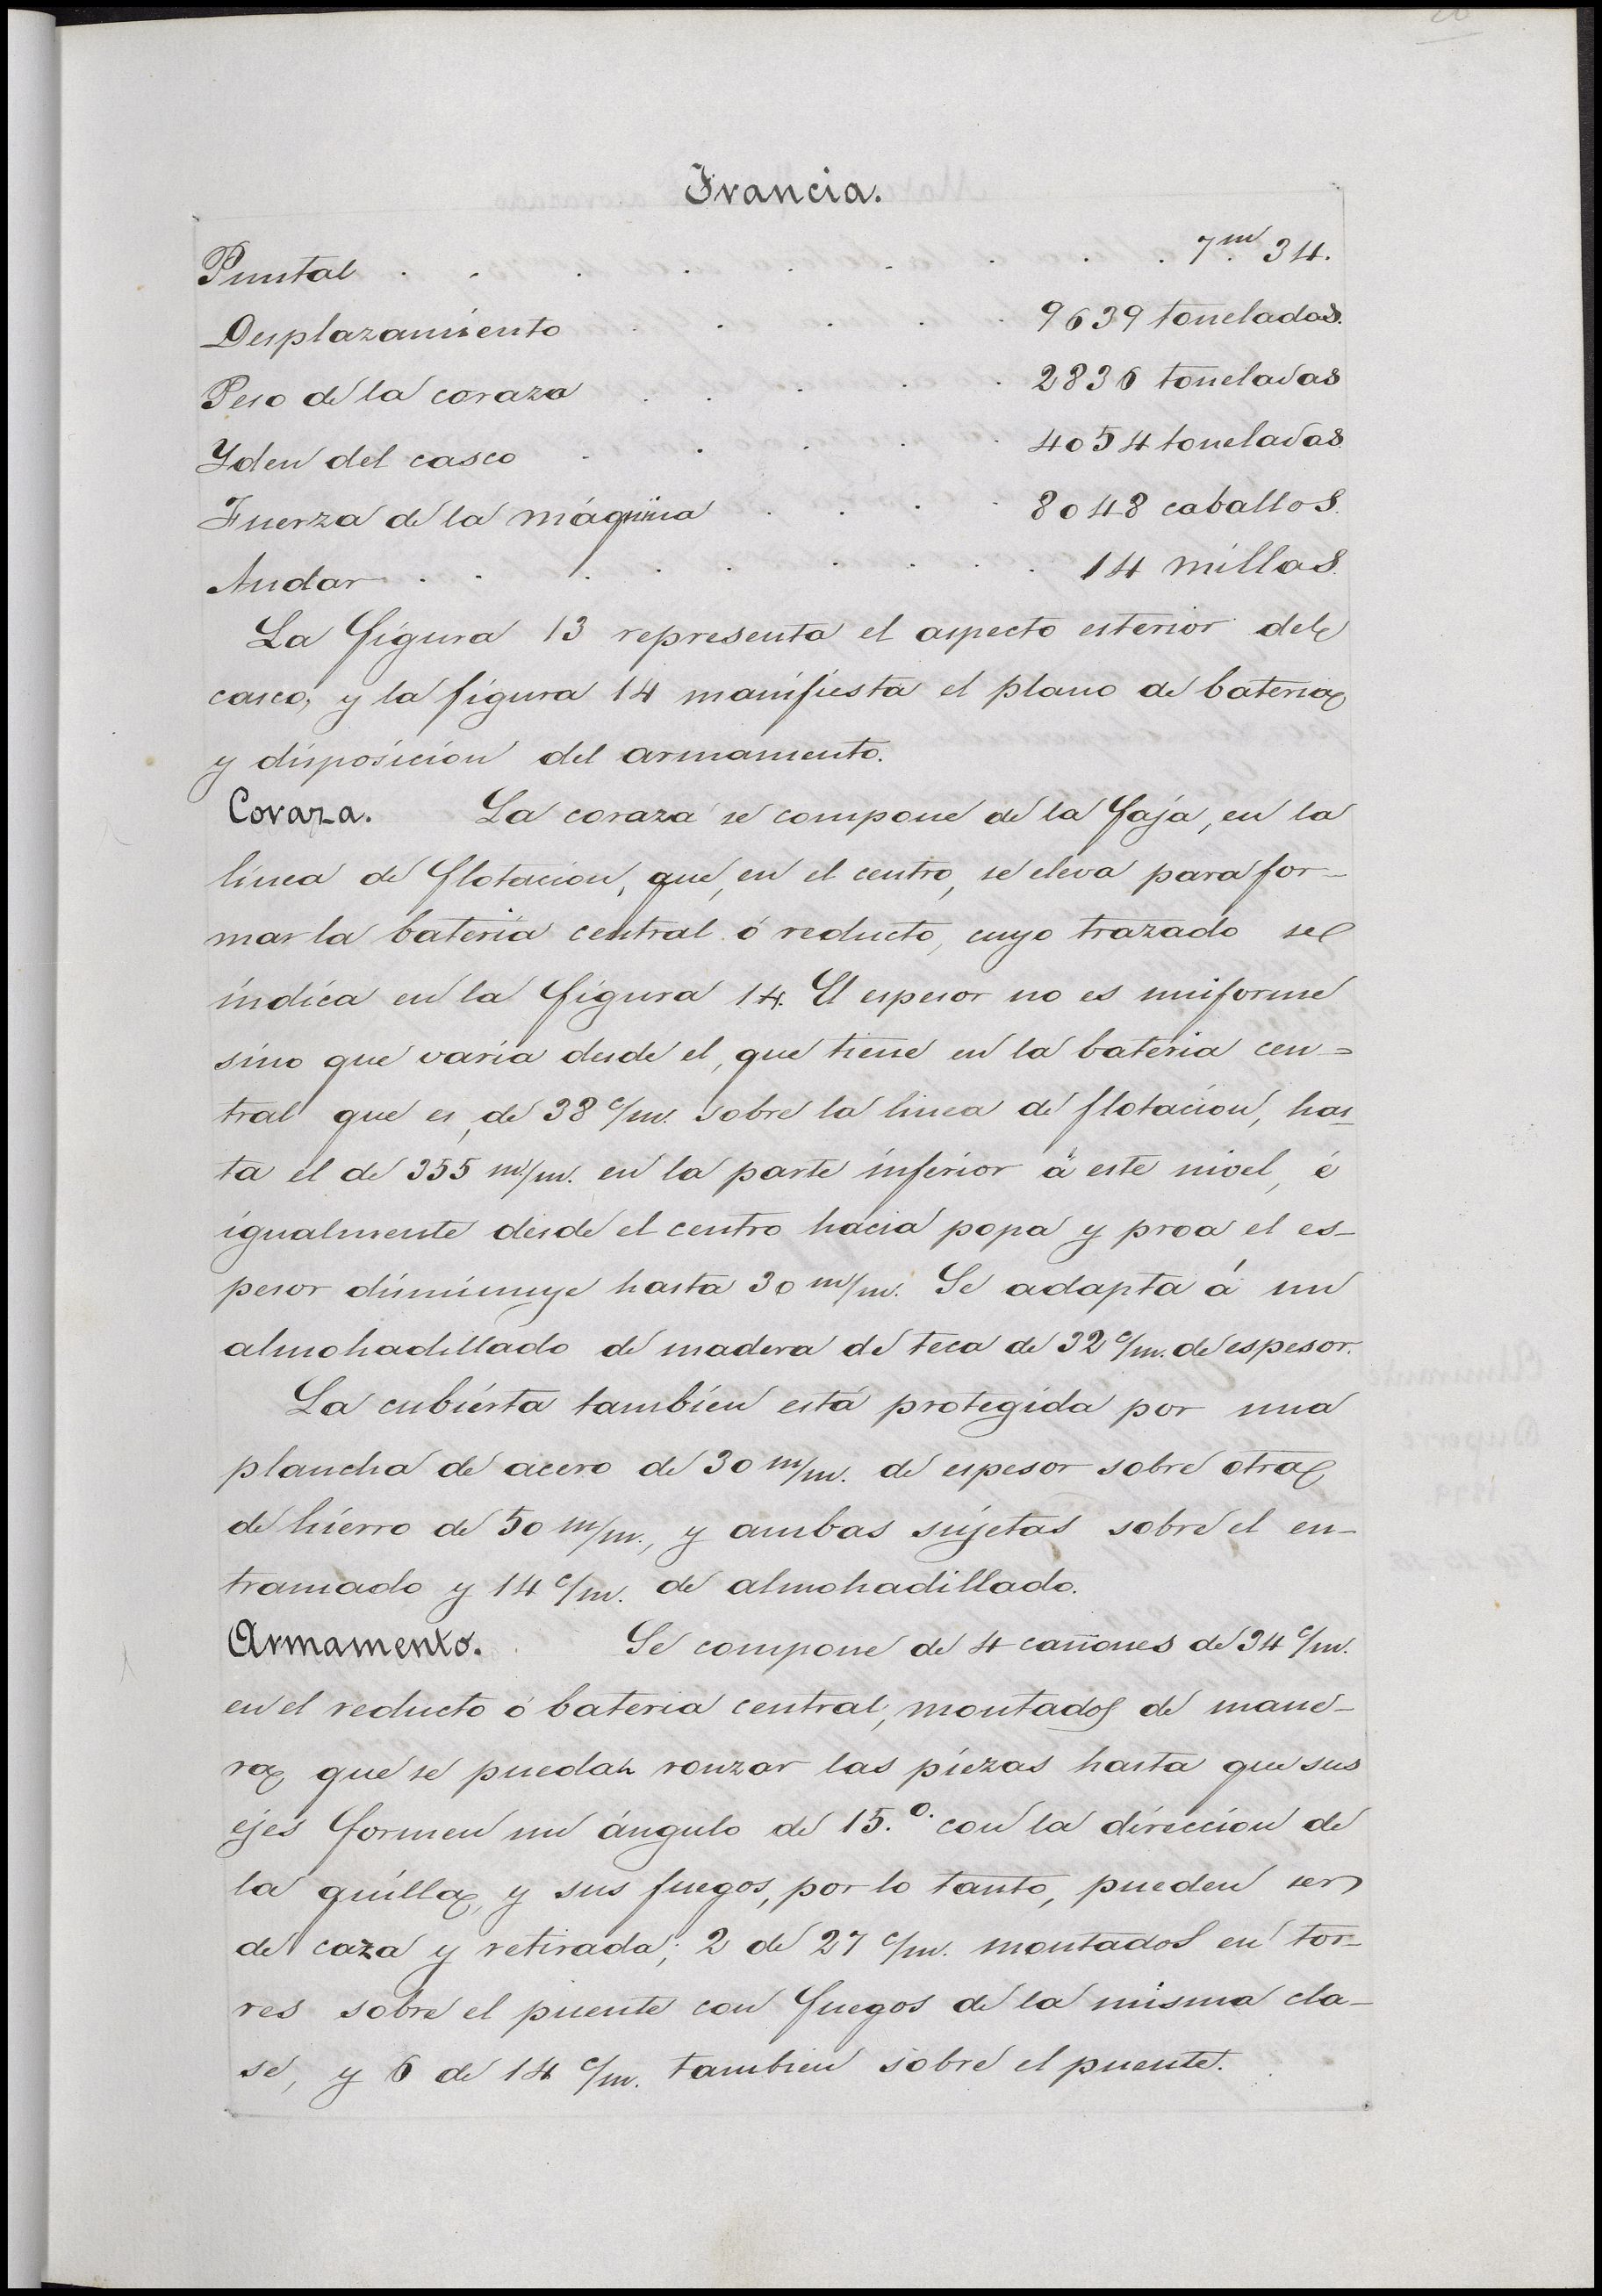 Francia.
Puntal . . . . . . . . . 7.m 34.
Desplazamiento . . . . . 9639 toneladas.
Peso de la coraza . . . . . 2836 toneladas
Yden del casco . . . . . 4054 toneladas
Fuerza de la máquina . . . . 8048 caballos.
Andar . . . . . . . . 14 millas.
La figura 13 representa el aspecto esterior del
casco, y la figura 14 manifiesta el plano de bateria
y disposicion del armamento.
Coraza. La coraza se compone de la faja, en la
linea de flotacion, que, en el centro, se eleva para for-
mar la bateria central ó reducto, cuyo trazado se
indica en la figura 14. El espesor no es uniforme
sino que varia desde el, que tiene en la bateria cen=
tral que es, de 38 c/m. sobre la linea de flotacion, has-
ta el de 355 m/m. en la parte inferior á este nivel, é
igualmente desde el centro hacia popa y proa el es-
pesor disminuye hasta 30 m/m. Se adapta á un
almohadillado de madera de teca de 32 c/m. de espesor.
La cubierta tambien está protegida por una
plancha de acero de 30 m/m. de espesor sobre otra
de hierro de 50 m/m., y ambas sujetas sobre el en-
tramado y 14 c/m. de almohadillado.
Armamento. Se compone de 4 cañones de 34 c/m.
en el reducto ó bateria central, montados de mane-
ra que se puedan ronzar las piezas hasta que sus
ejes formen un ángulo de 15.º con la direccion de
la quilla, y sus fuegos, por lo tanto, pueden ser
de caza y retirada; 2 de 27 c/m. montados en tor-
res sobre el puente con fuegos de la misma cla-
se, y 6 de 14 c/m. tambien sobre el puente.